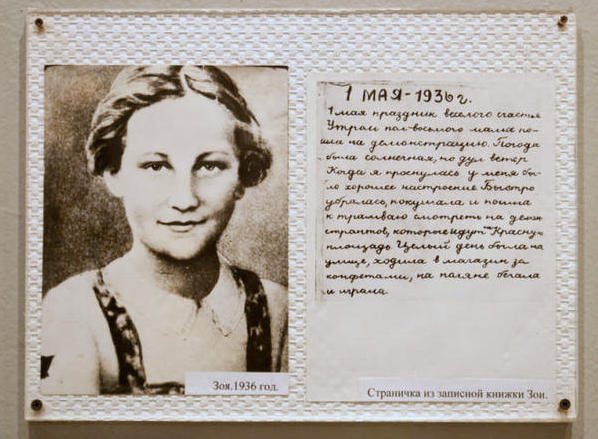 Зоя.1936 год.
1 МАЯ-1936г.
1 мая праздник веселого счастья
Утром пол-восьмого мама по-
шла на демонстрацию. Погода
была солнечная, но дул ветер
Когда я проснулась у меня бы-
ло хорошее настроение Быстро
убралась, покушала и пошла
к трамваю смотреть на демон
странтов, которые идут на Красную
площадь Целый день была на
улице, ходила в магазин за
конфетами, на поляне бегала
и играла
Страничка из записной книжки Зои.